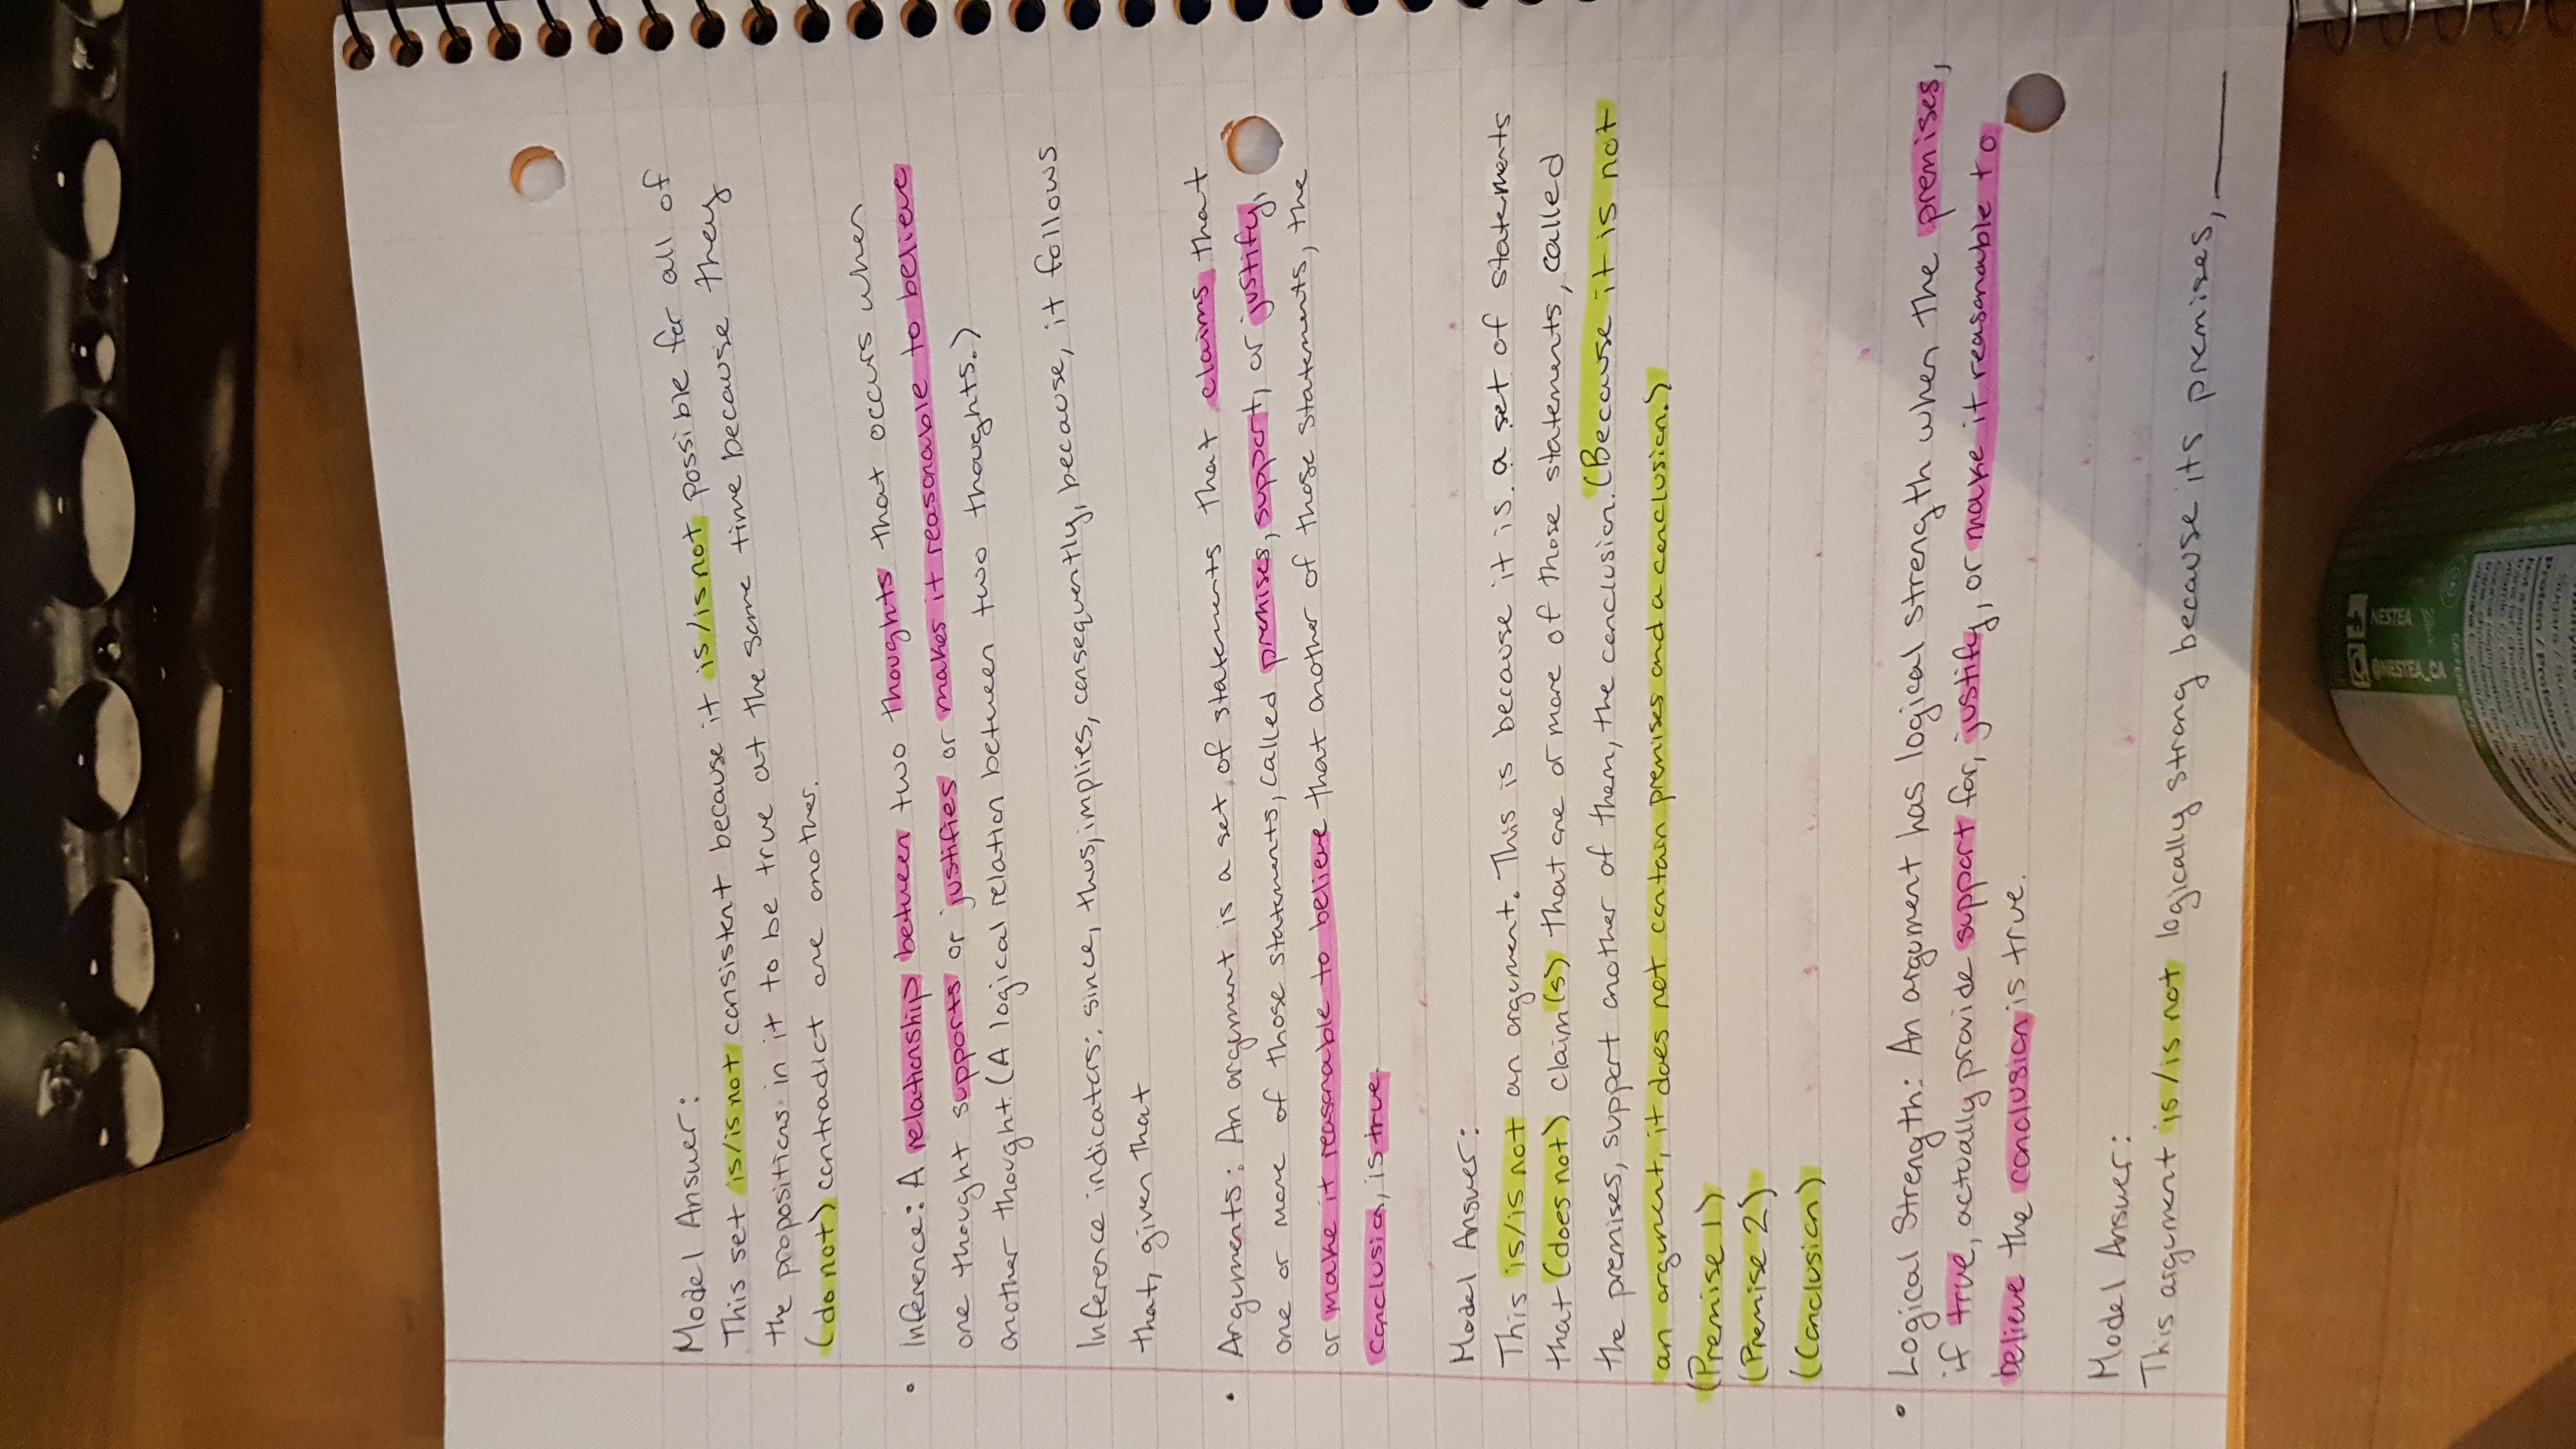 Model Answer:
This set is/is not consistent because it is/is not possible for all of
the propositions in it to be true at the same time because they
(do not) contradict one another.
• Inference: A relationship between two thoughts that occurs when
one thought supports or justifies or makes it reasonable to believe
another thought. (A logical relation between two thoughts.)
Inference indicators: since, thus, implies, consequently, because, it follows
that, given that
• Arguments: An argument is a set of statements that claims that
one or more of those statements, called premises, support, or justify,
or make it reasonable to believe that another of those statements, the
conclusion, is true.
Model Answer:
This is/is not an argument. This is because it is a set of statements
that (does not) claim(s) that one or more of those statements, called
the premises, support another of them, the conclusion. (Because it is not
an argument, it does not contain premises and a conclusion.)
(Premise 1)
(Premise 2)
(Conclusion)
• Logical Strength: An argument has logical strength when the premises,
if true, actually provide support for, justify, or make it reasonable to
believe the conclusion is true.
Model Answer:
This argument is/is not logically strong because its premises, ___
NESTEA
@NESTEA_CA